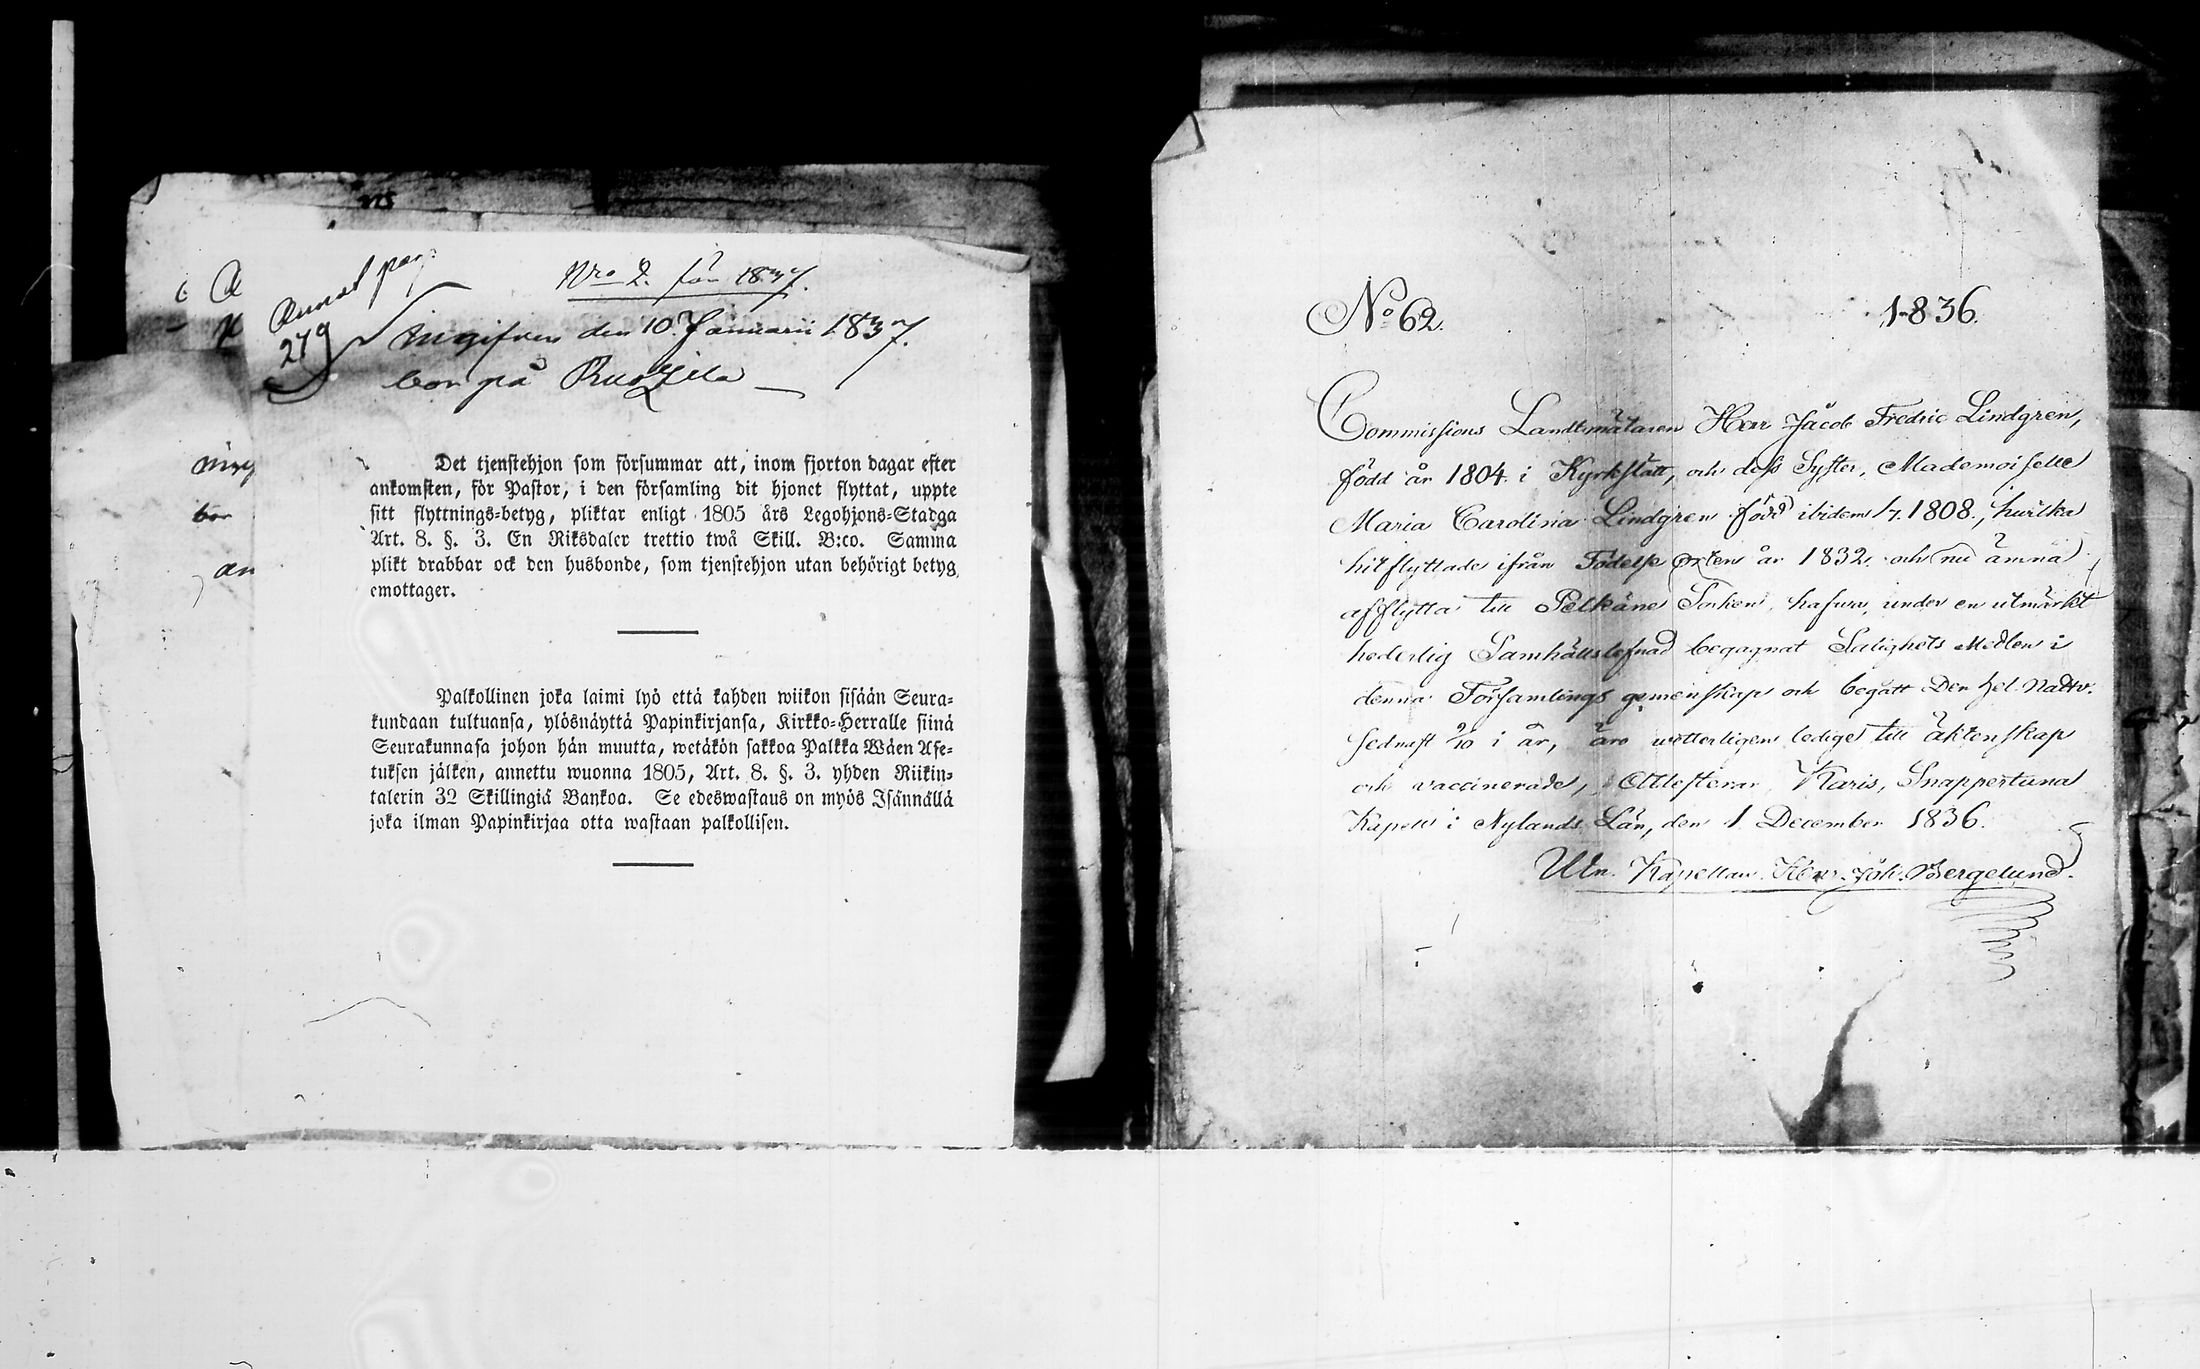 Nro 2. för 1837.
Annot. pag.
279
Ingifven den 10. Januarii 1837.
bor på
Det tjenstehjon som försummar att, inom fjorton dagar efter
ankomsten, för Pastor, i den församling dit hjonet flyttat, uppte
sitt flyttnings-betyg, pliktar enligt 1805 års Legohjons-Stadga
Art. 8. §. 3. En Riksdaler trettio twå Skill. B:co. Samma
plikt drabbar ock den husbonde, som tjenstehjon utan behörigt betyg
emottager.
Palkollinen joka laimi lyö että kahden wiikon sisään Seura-
kundaan tultuansa, ylösnäyttä Papinkirjansa, Kirkko-Herralle siinä
Seurakunnasa johon hän muutta, wetäkön sakkoa Palkka Wäen Ase-
tuksen jälken, annettu wuonna 1805, Art. 8. §. 3. yhden Riikin-
talerin 32 Skillingiä Bankoa. Se edeswastaus on myös Isännällä
joka ilman Papinkirjaa otta wastaan palkollisen.
No 62. 1836.
Commissions Landtmätaren Herr Jacob Fredric Lindgren,
född år 1804 i Kyrkslätt, och dess Syster, Mademoiselle
Maria Carolina Lindgren född ibidem 1808, hvilka
hitflyttade ifrån Födelse Orten år 1832 och nu ämna
afflytta till Pelkäne Socken, hafva, under en utmärkt
hederlig Samhällslefnad begagnat Salighets Medlen i
denna Församlings gemenskap och begått Den Hel. Nattv.
sednast 2/10 i år, äro vetterligen lediga till äktenskap
och vaccinerade, Attesterar, Karis, Snappertuna
Kapell i Nylands Län, den 1 December 1836.
Kapellan Joh. Bergelund.